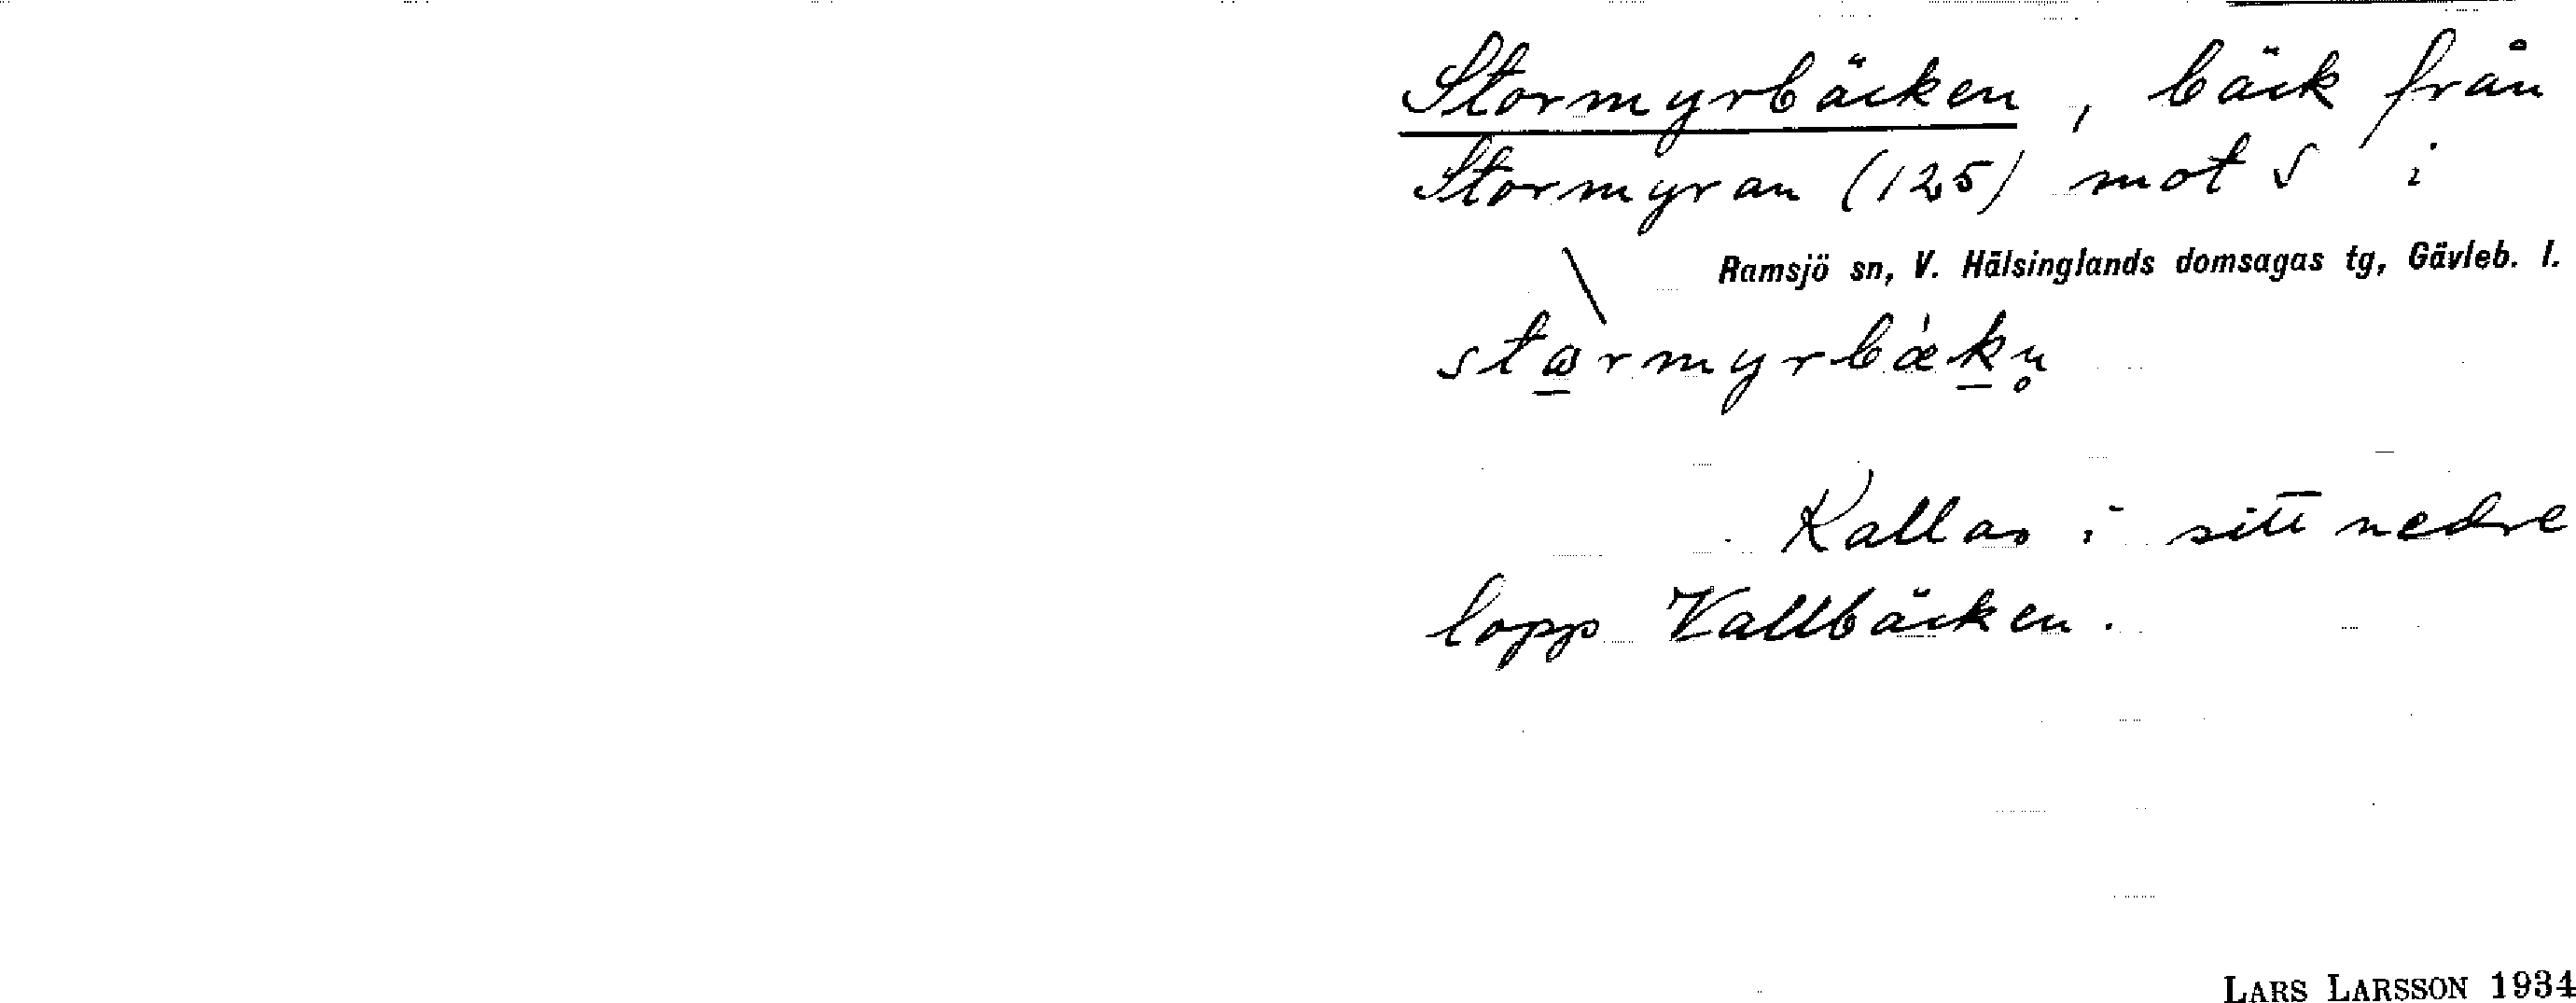 Stormyrbäcken, bäck från
Stormyran (125) mot S i
Ramsjö sn, V. Hälsinglands domsagas tg, Gävleb. l.
stɷ̲̀rmyrbæ̍k̲n̥
Kallas i sitt nedre
lopp Vallbäcken.
LARS LARSSON 1934